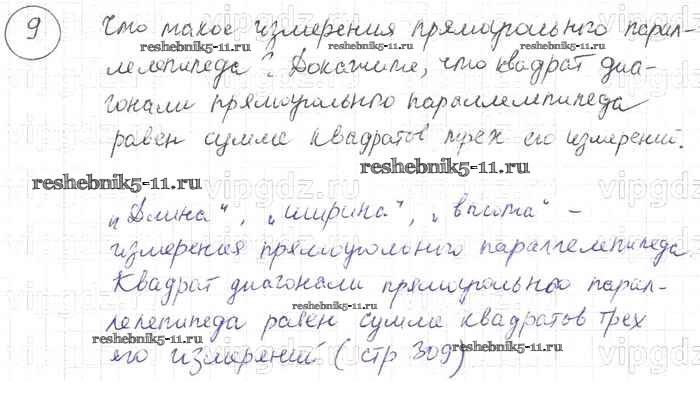 9 Что такое измерения прямоугольного парал-
reshebnik5-11.ru reshebnik5-11.ru
лелепипеда? Докажите, что квадрат диа-
гонали прямоугольного параллелепипеда
равен сумме квадратов трех его измерений.
reshebnik5-11.ru
reshebnik5-11.ru
vipgdz.ru
„Длина“, „ширина“, „высота“ –
измерения прямоугольного параллелепипеда.
Квадрат диагонали прямоугольного парал-
reshebnik5-11.ru
лелепипеда равен сумме квадратов трех
reshebnik5-11.ru reshebnik5-11.ru
его измерений (стр 309)